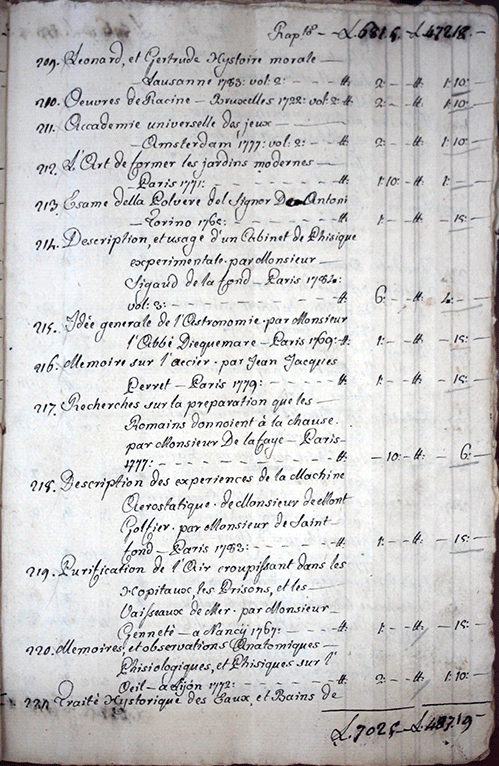 Rap.to — £. 681:5 — £. 472:8 —
209. Leonard, et Gertrude Hystoire morale —
— Lausanne 1783: vol: 2: — — — #: 2: — #: 1: 10:
210. Oeuvres de Racine — Bruxelles 1722: vol: 2: #: 2: — #: 1: 10:
211. Accademie universelle des jeux —
— Amsterdam 1777: vol: 2: — #: 2: — #: 1: 10:
212. L'Art de former les jardins modernes —
— Paris 1771: — — — #: 1: 10: — #: 1: —
213. Esame della Polvere del Signor D'Antoni
— Torino 1765: — — — #: 1: — #: — 15:
214. Description, et usage d'un Cabinet de Phisique
experimentale. par Monsieur —
Sigaud de la fond — Paris 1784:
vol: 2: — — — #: 6: — #: 4: —
215. Idée generale de l'Astronomie. par Monsieur
l'Abbé Diequemare — Paris 1769: #: 1: — #: — 15:
216. Memoire sur l'accier. par Jean Jacques
Perret — Paris 1779: — — — #: 1: — #: — 15:
217. Recherches sur la preparation que les —
Romains donnoient à la chause.
par Monsieur De la faye — Paris
1777: — — — #: — 10: — #: — 6:
218. Description des experiences de la Machine
Aerostatique. de Monsieur de Mont
Golfier. par Monsieur de Saint
fond — Paris 1783: — — — #: 1: — #: — 15:
219. Purification de l'Air croupissant dans les
Hopitaux, les Prisons, et les —
Vaisseaux de Mer. par Monsieur —
Genneté — a Nancÿ 1767: — #: 1: — #: — 15:
220. Memoires, et observations Anatomiques —
Phisiologiques, et Phisiques sur l'
Oeil — a Lijòn 1772: — — — #: 2: — #: 1: 10:
221. Traité Hystorique des Eaux, et Bains de
£. 702:5 — £. 487:19 —